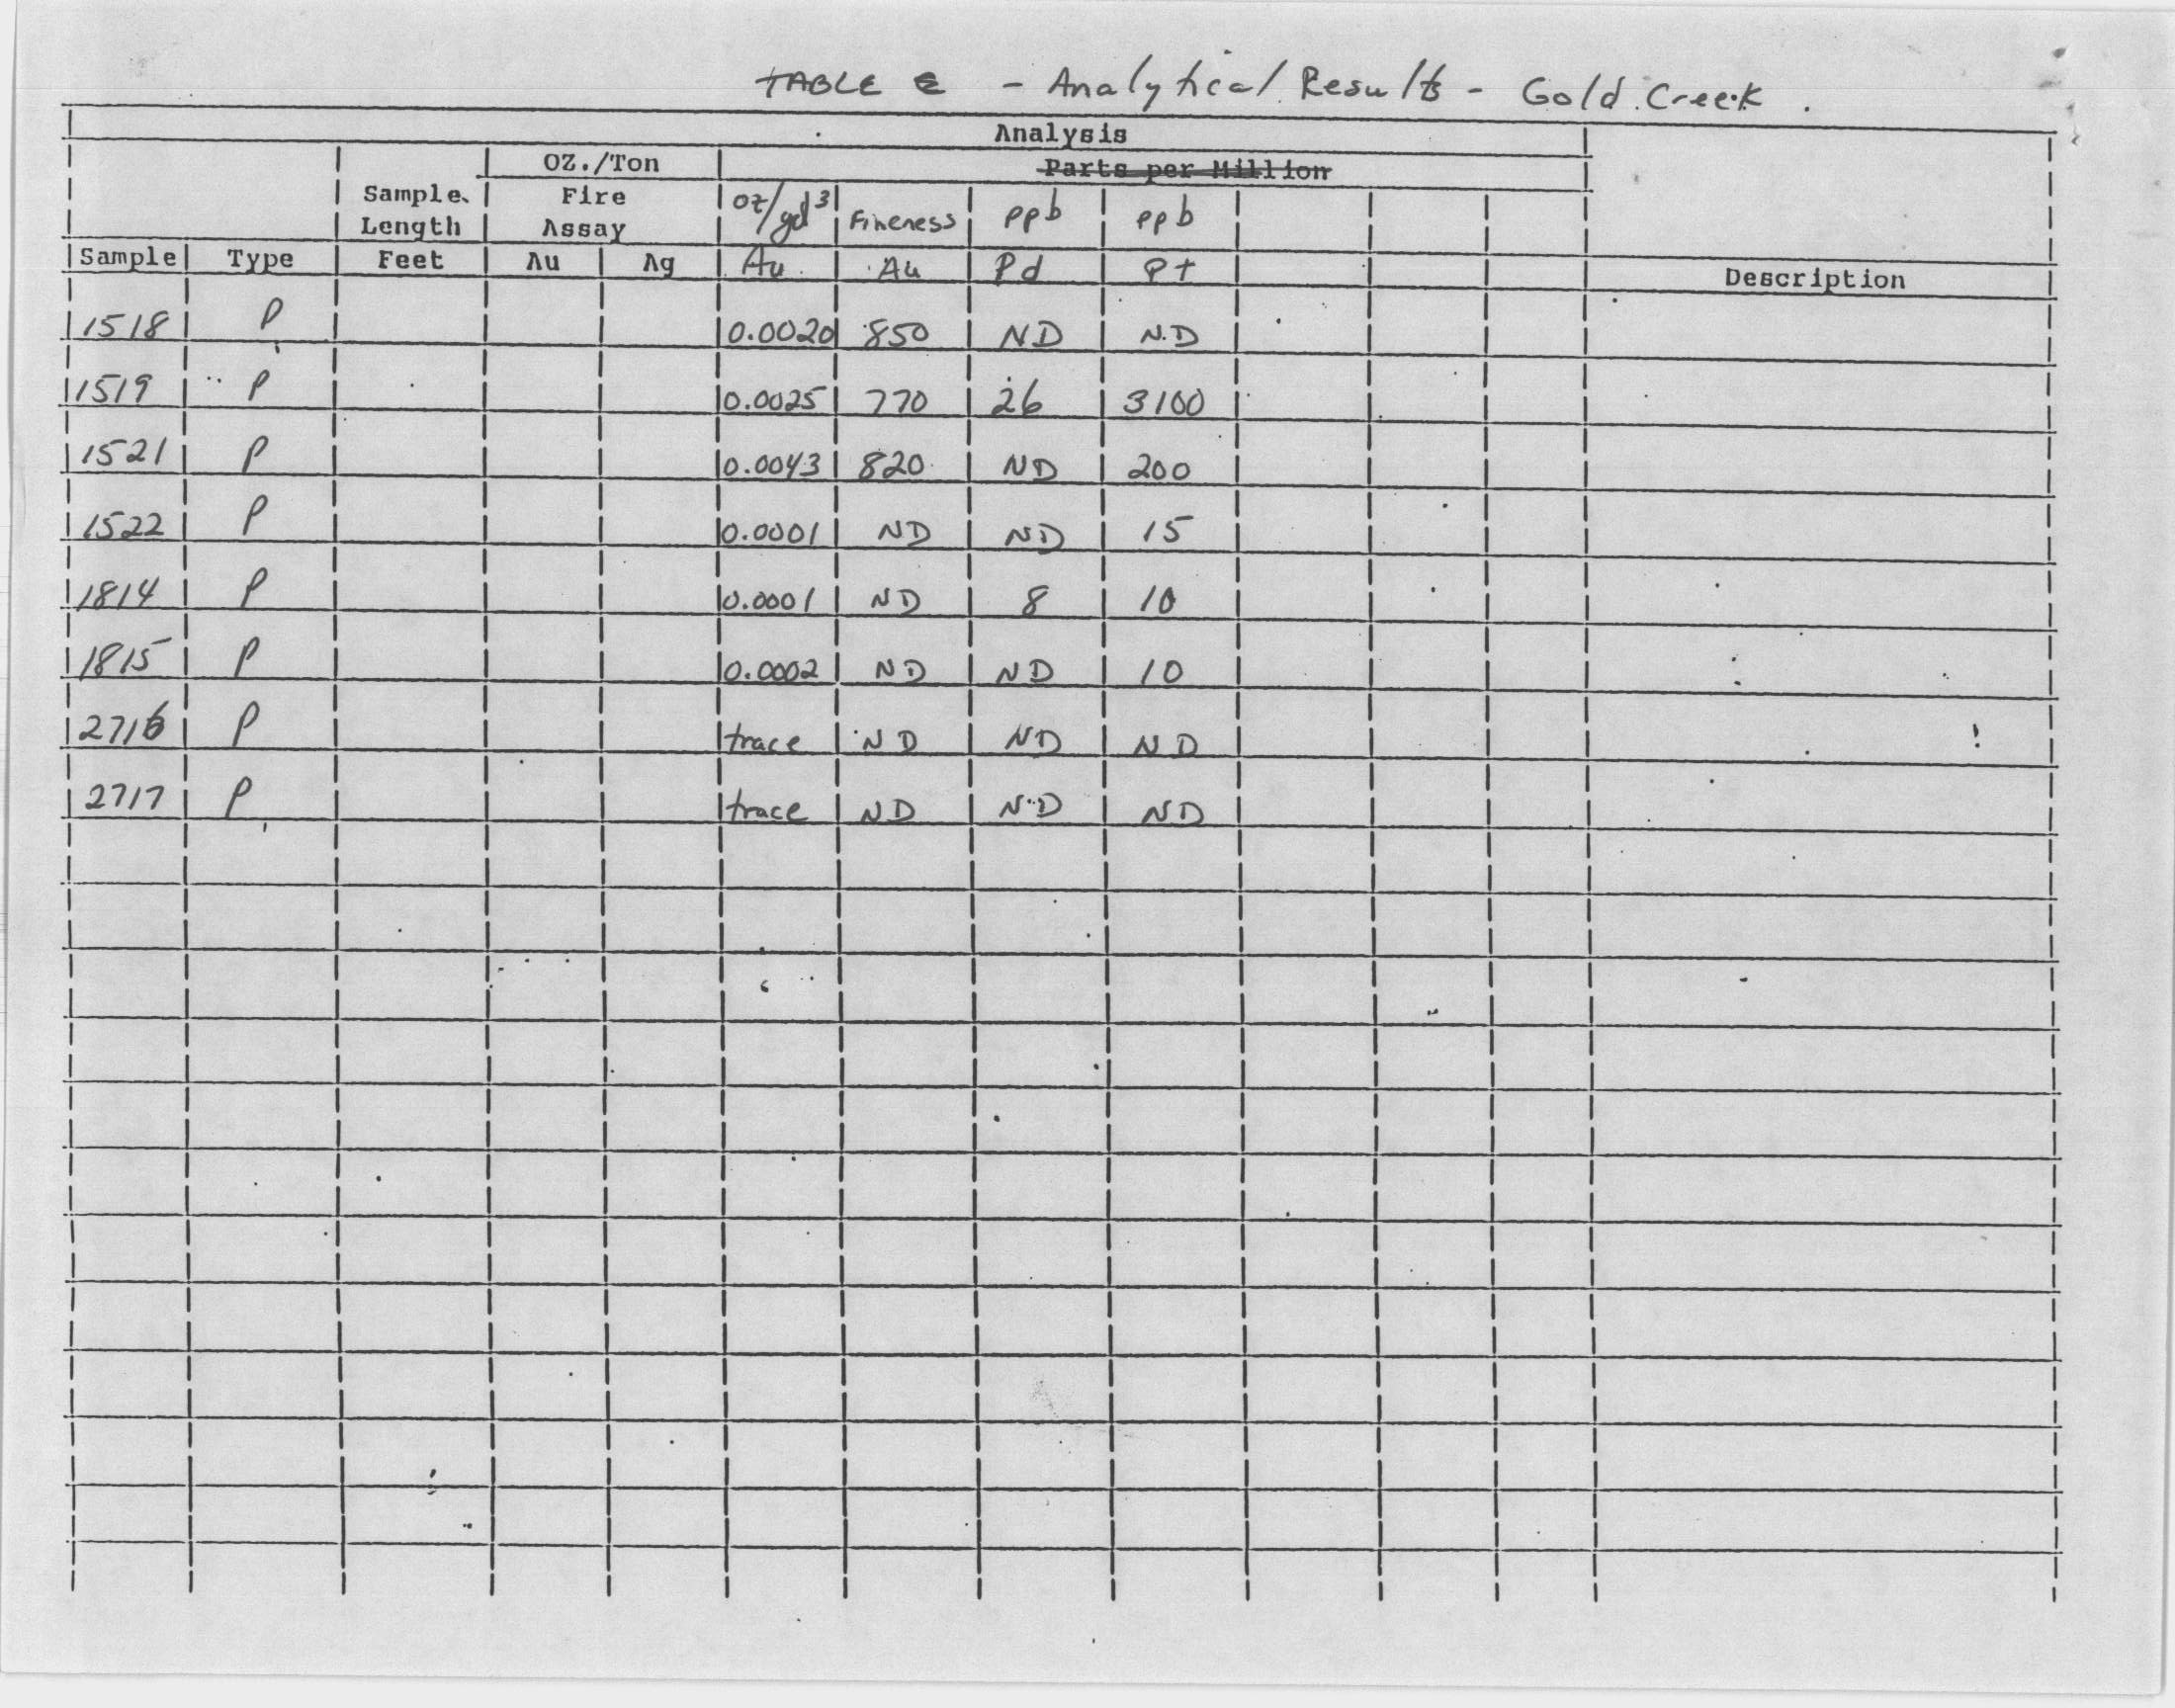 TABLE - Analytical Results - Gold Creek.
Analysis
OZ./Ton Parts per Million
Sample Length Fire Assay oz/yd³ Fineness ppb ppb
Sample Type Feet Au Ag Au Au Pd Pt Description
1518 P 0.0020 850 ND ND
1519 P 0.0025 770 26 3100
1521 P 0.0043 820 ND 200
1522 P 0.0001 ND ND 15
1814 P 0.0001 ND 8 10
1815 P 0.0002 ND ND 10
2716 P trace ND ND ND
2717 P trace ND ND ND